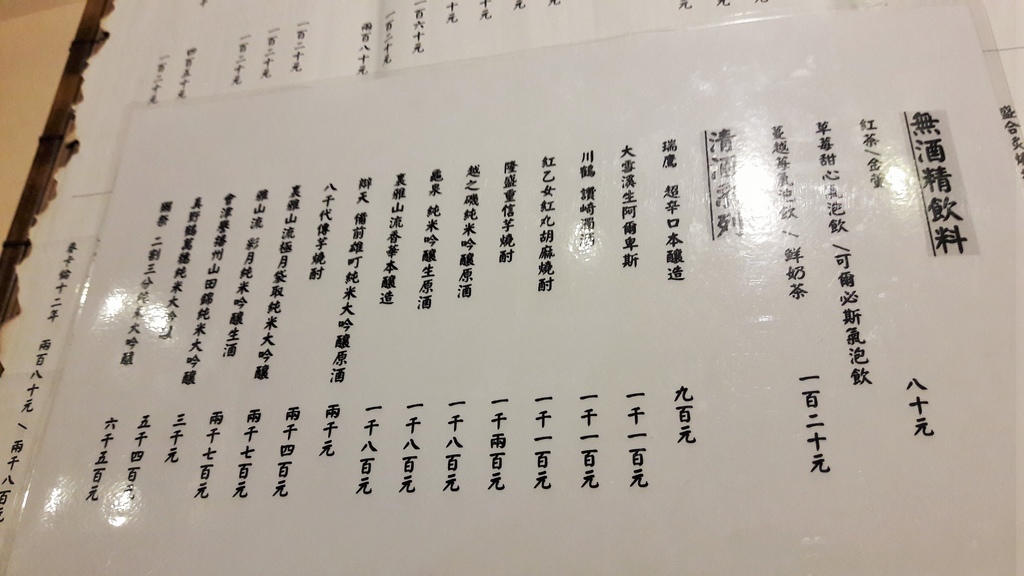 無酒精飲料
紅茶/金萱
八十元
草莓甜心氣泡飲 /可爾必斯氣泡飲
蔓越莓氣泡飲 / 鮮奶茶
一百二十元
清酒系列
瑞鷹 超辛口本釀造
九百元
大雪溪生阿爾卑斯
一千一百元
川鶴 讚崎
一千一百元
紅乙女紅丸胡麻燒酎
一千一百元
隆盛重信芋燒酎
一千兩百元
越之磯純米吟釀原酒
一千八百元
龜泉 純米吟釀生原酒
一千八百元
裏雅山流香華本釀造
一千八百元
辯天 備前雄町純米大吟釀原酒
兩千元
八千代傳芋燒酎
兩千四百元
裏雅山流極月袋取純米大吟釀
兩千七百元
雅山流 影月純米吟釀生酒
兩千七百元
會津譽播州山田錦純米大吟釀
三千元
真野鶴萬穗純米大吟釀
五千四百元
獺祭 二割三分純米大吟釀
六千五百元
一百二十元
四百五十元
一百二十元
一百二十元
一百二十元
兩百八十元
一百二十元
一百六十元
兩百八十元 / 兩千八百元
盛合